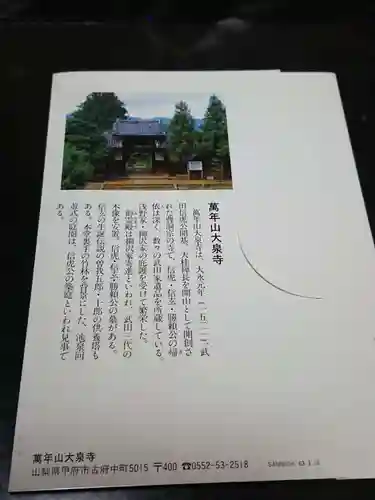 萬年山大泉寺
萬年山大泉寺は、大永元年(一五二一)、武
田信虎公開基、天桂禅長を開山として開創さ
れた曹洞宗の寺で、信虎・信玄・勝頼公の帰
依は深く、数々の武田家遺品を所蔵している。
浅野家・柳沢家の庇護を受けて繁栄した。
御霊殿は柳沢家寄進といわれ、武田三代の
木像を安置、信虎・信玄・勝頼公の墓がある。
信玄の生誕伝説の曽我五郎・十郎の供養塔も
ある。本堂裏手の竹林を背景にした、池泉回
遊式の庭園は、信虎公の築庭といわれ見事で
ある。
萬年山大泉寺
山梨県甲府市古府中町5015 〒400 ☎0552-53-2518